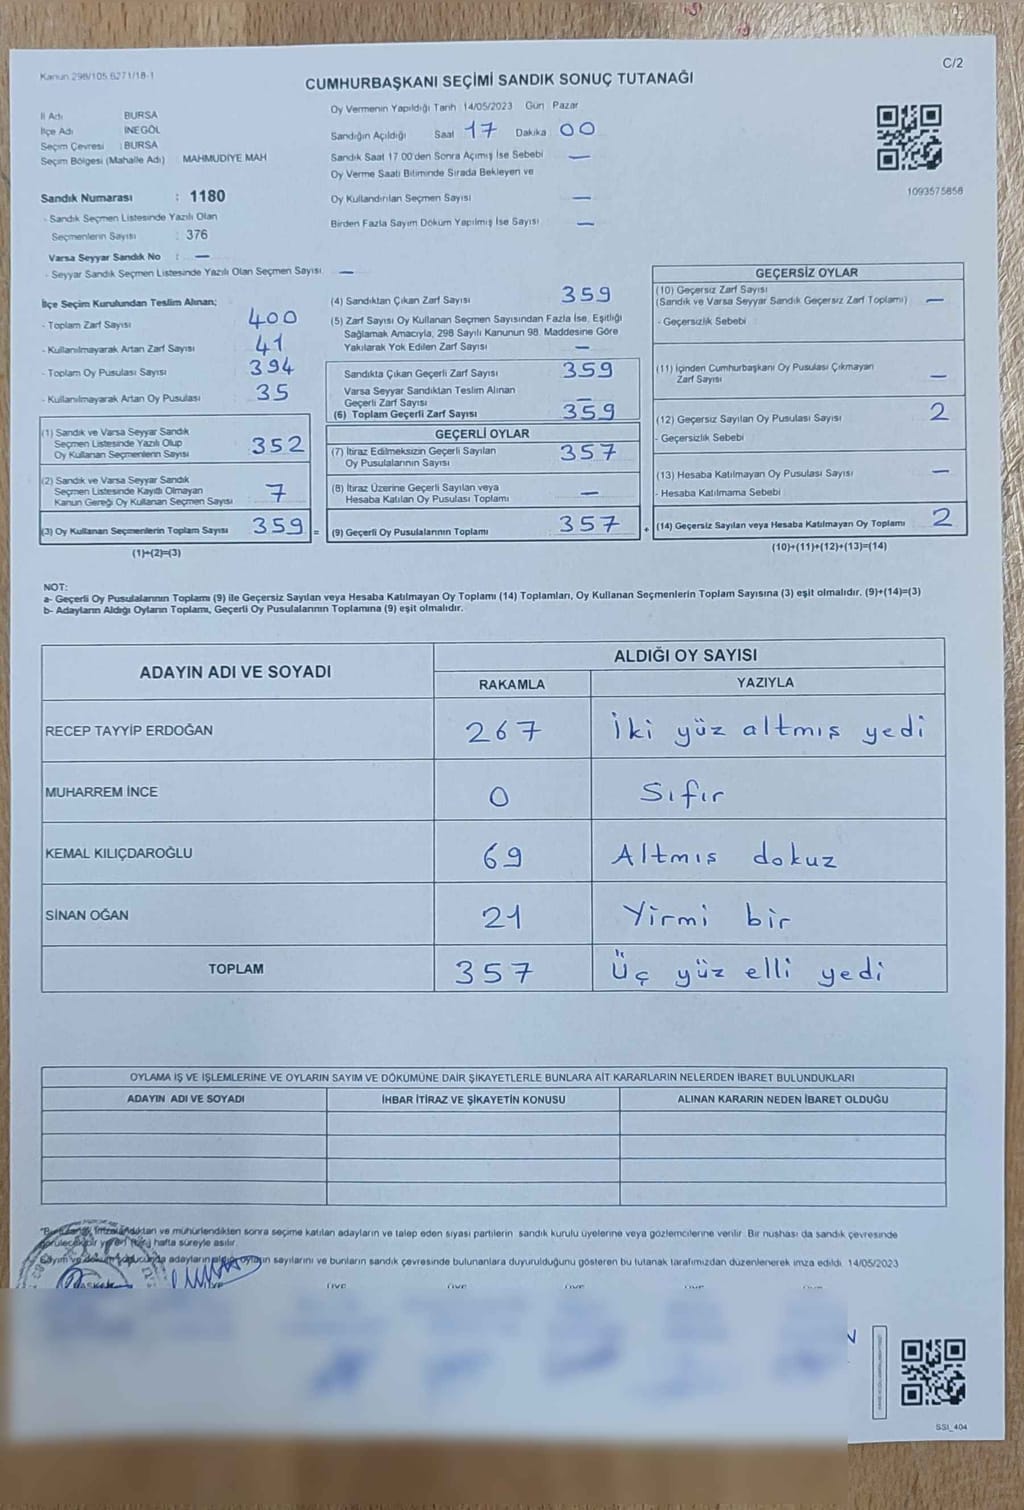 Kanun 298/105 6271/18-1
C/2
CUMHURBAŞKANI SEÇİMİ SANDIK SONUÇ TUTANAĞI
İl Adı BURSA
İlçe Adı İNEGÖL
Seçim Çevresi : BURSA
Seçim Bölgesi (Mahalle Adı) : MAHMUDİYE MAH
Oy Vermenin Yapıldığı Tarih 14/05/2023 Gün Pazar
Sandığın Açıldığı Saat 17 Dakika 00
Sandık Saat 17 00'den Sonra Açımış İse Sebebi —
Oy Verme Saati Bitiminde Sırada Bekleyen ve
Oy Kullandırılan Seçmen Sayısı —
Birden Fazla Sayım Döküm Yapılmış İse Sayısı —
1093575858
Sandık Numarası : 1180
- Sandık Seçmen Listesinde Yazılı Olan
Seçmenlerin Sayısı : 376
Varsa Seyyar Sandık No : —
- Seyyar Sandık Seçmen Listesinde Yazılı Olan Seçmen Sayısı. —
İlçe Seçim Kurulundan Teslim Alınan;
- Toplam Zarf Sayısı 400
- Kullanılmayarak Artan Zarf Sayısı 41
- Toplam Oy Pusulası Sayısı 394
- Kullanılmayarak Artan Oy Pusulası 35
(1) Sandık ve Varsa Seyyar Sandık
Seçmen Listesinde Yazılı Olup
Oy Kullanan Seçmenlerin Sayısı 352
(2) Sandık ve Varsa Seyyar Sandık
Seçmen Listesinde Kayıtlı Olmayan
Kanun Gereği Oy Kullanan Seçmen Sayısı 7
(3) Oy Kullanan Seçmenlerin Toplam Sayısı 359 =
(1)+(2)=(3)
(4) Sandıktan Çıkan Zarf Sayısı 359
(5) Zarf Sayısı Oy Kullanan Seçmen Sayısından Fazla İse, Eşitliği
Sağlamak Amacıyla, 298 Sayılı Kanunun 98. Maddesine Göre
Yakılarak Yok Edilen Zarf Sayısı —
Sandıkta Çıkan Geçerli Zarf Sayısı 359
Varsa Seyyar Sandıktan Teslim Alınan
Geçerli Zarf Sayısı —
(6) Toplam Geçerli Zarf Sayısı 359
GEÇERLİ OYLAR
(7) İtiraz Edilmeksizin Geçerli Sayılan
Oy Pusulalarının Sayısı 357
(8) İtiraz Üzerine Geçerli Sayılan veya
Hesaba Katılan Oy Pusulası Toplamı —
(9) Geçerli Oy Pusulalarının Toplamı 357 +
GEÇERSİZ OYLAR
(10) Geçersiz Zarf Sayısı
(Sandık ve Varsa Seyyar Sandık Geçersiz Zarf Toplamı) —
- Geçersizlik Sebebi
(11) İçinden Cumhurbaşkanı Oy Pusulası Çıkmayan
Zarf Sayısı —
(12) Geçersiz Sayılan Oy Pusulası Sayısı 2
- Geçersizlik Sebebi
(13) Hesaba Katılmayan Oy Pusulası Sayısı —
- Hesaba Katılmama Sebebi
(14) Geçersiz Sayılan veya Hesaba Katılmayan Oy Toplamı 2
(10)+(11)+(12)+(13)=(14)
NOT:
a- Geçerli Oy Pusulalarının Toplamı (9) ile Geçersiz Sayılan veya Hesaba Katılmayan Oy Toplamı (14) Toplamları, Oy Kullanan Seçmenlerin Toplam Sayısına (3) eşit olmalıdır. (9)+(14)=(3)
b- Adayların Aldığı Oyların Toplamı, Geçerli Oy Pusulalarının Toplamına (9) eşit olmalıdır.
ADAYIN ADI VE SOYADI
ALDIĞI OY SAYISI
RAKAMLA YAZIYLA
RECEP TAYYİP ERDOĞAN 267 İki yüz altmış yedi
MUHARREM İNCE 0 Sıfır
KEMAL KILIÇDAROĞLU 69 Altmış dokuz
SİNAN OĞAN 21 Yirmi bir
TOPLAM 357 Üç yüz elli yedi
OYLAMA İŞ VE İŞLEMLERİNE VE OYLARIN SAYIM VE DÖKÜMÜNE DAİR ŞİKAYETLERLE BUNLARA AİT KARARLARIN NELERDEN İBARET BULUNDUKLARI
ADAYIN ADI VE SOYADI İHBAR İTİRAZ VE ŞİKAYETİN KONUSU ALINAN KARARIN NEDEN İBARET OLDUĞU
ve mühürlendikten sonra seçime katılan adayların ve talep eden siyasi partilerin sandık kurulu üyelerine veya gözlemcilerine verilir. Bir nüshası da sandık çevresinde
hafta süreyle asılır.
sayılarını ve bunların sandık çevresinde bulunanlara duyurulduğunu gösteren bu tutanak tarafımızdan düzenlenerek imza edildi. 14/05/2023
SSI_404